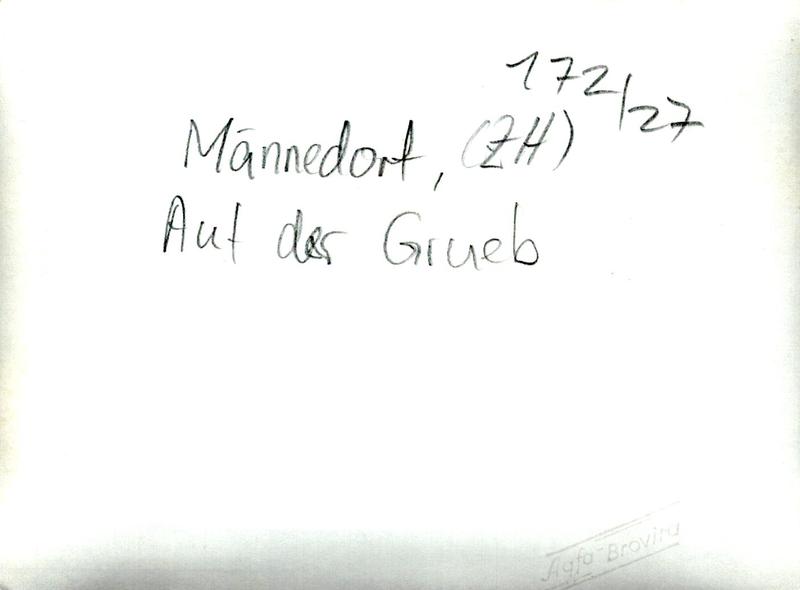 172/27
Männedorf, (ZH)
Auf der Grueb
Agfa-Brovira